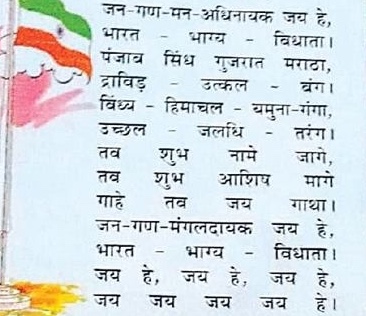 जन-गण-मन-अधिनायक जय हे,
भारत - भाग्य - विधाता।
पंजाब सिंध गुजरात मराठा,
द्राविड़ - उत्कल - बंग।
विंध्य - हिमाचल - यमुना-गंगा,
उच्छल - जलधि - तरंग।
तव शुभ नामे जागे,
तव शुभ आशिष मागे
गाहे तव जय गाथा।
जन-गण-मंगलदायक जय हे,
भारत - भाग्य - विधाता।
जय हे, जय हे, जय हे,
जय जय जय जय हे।